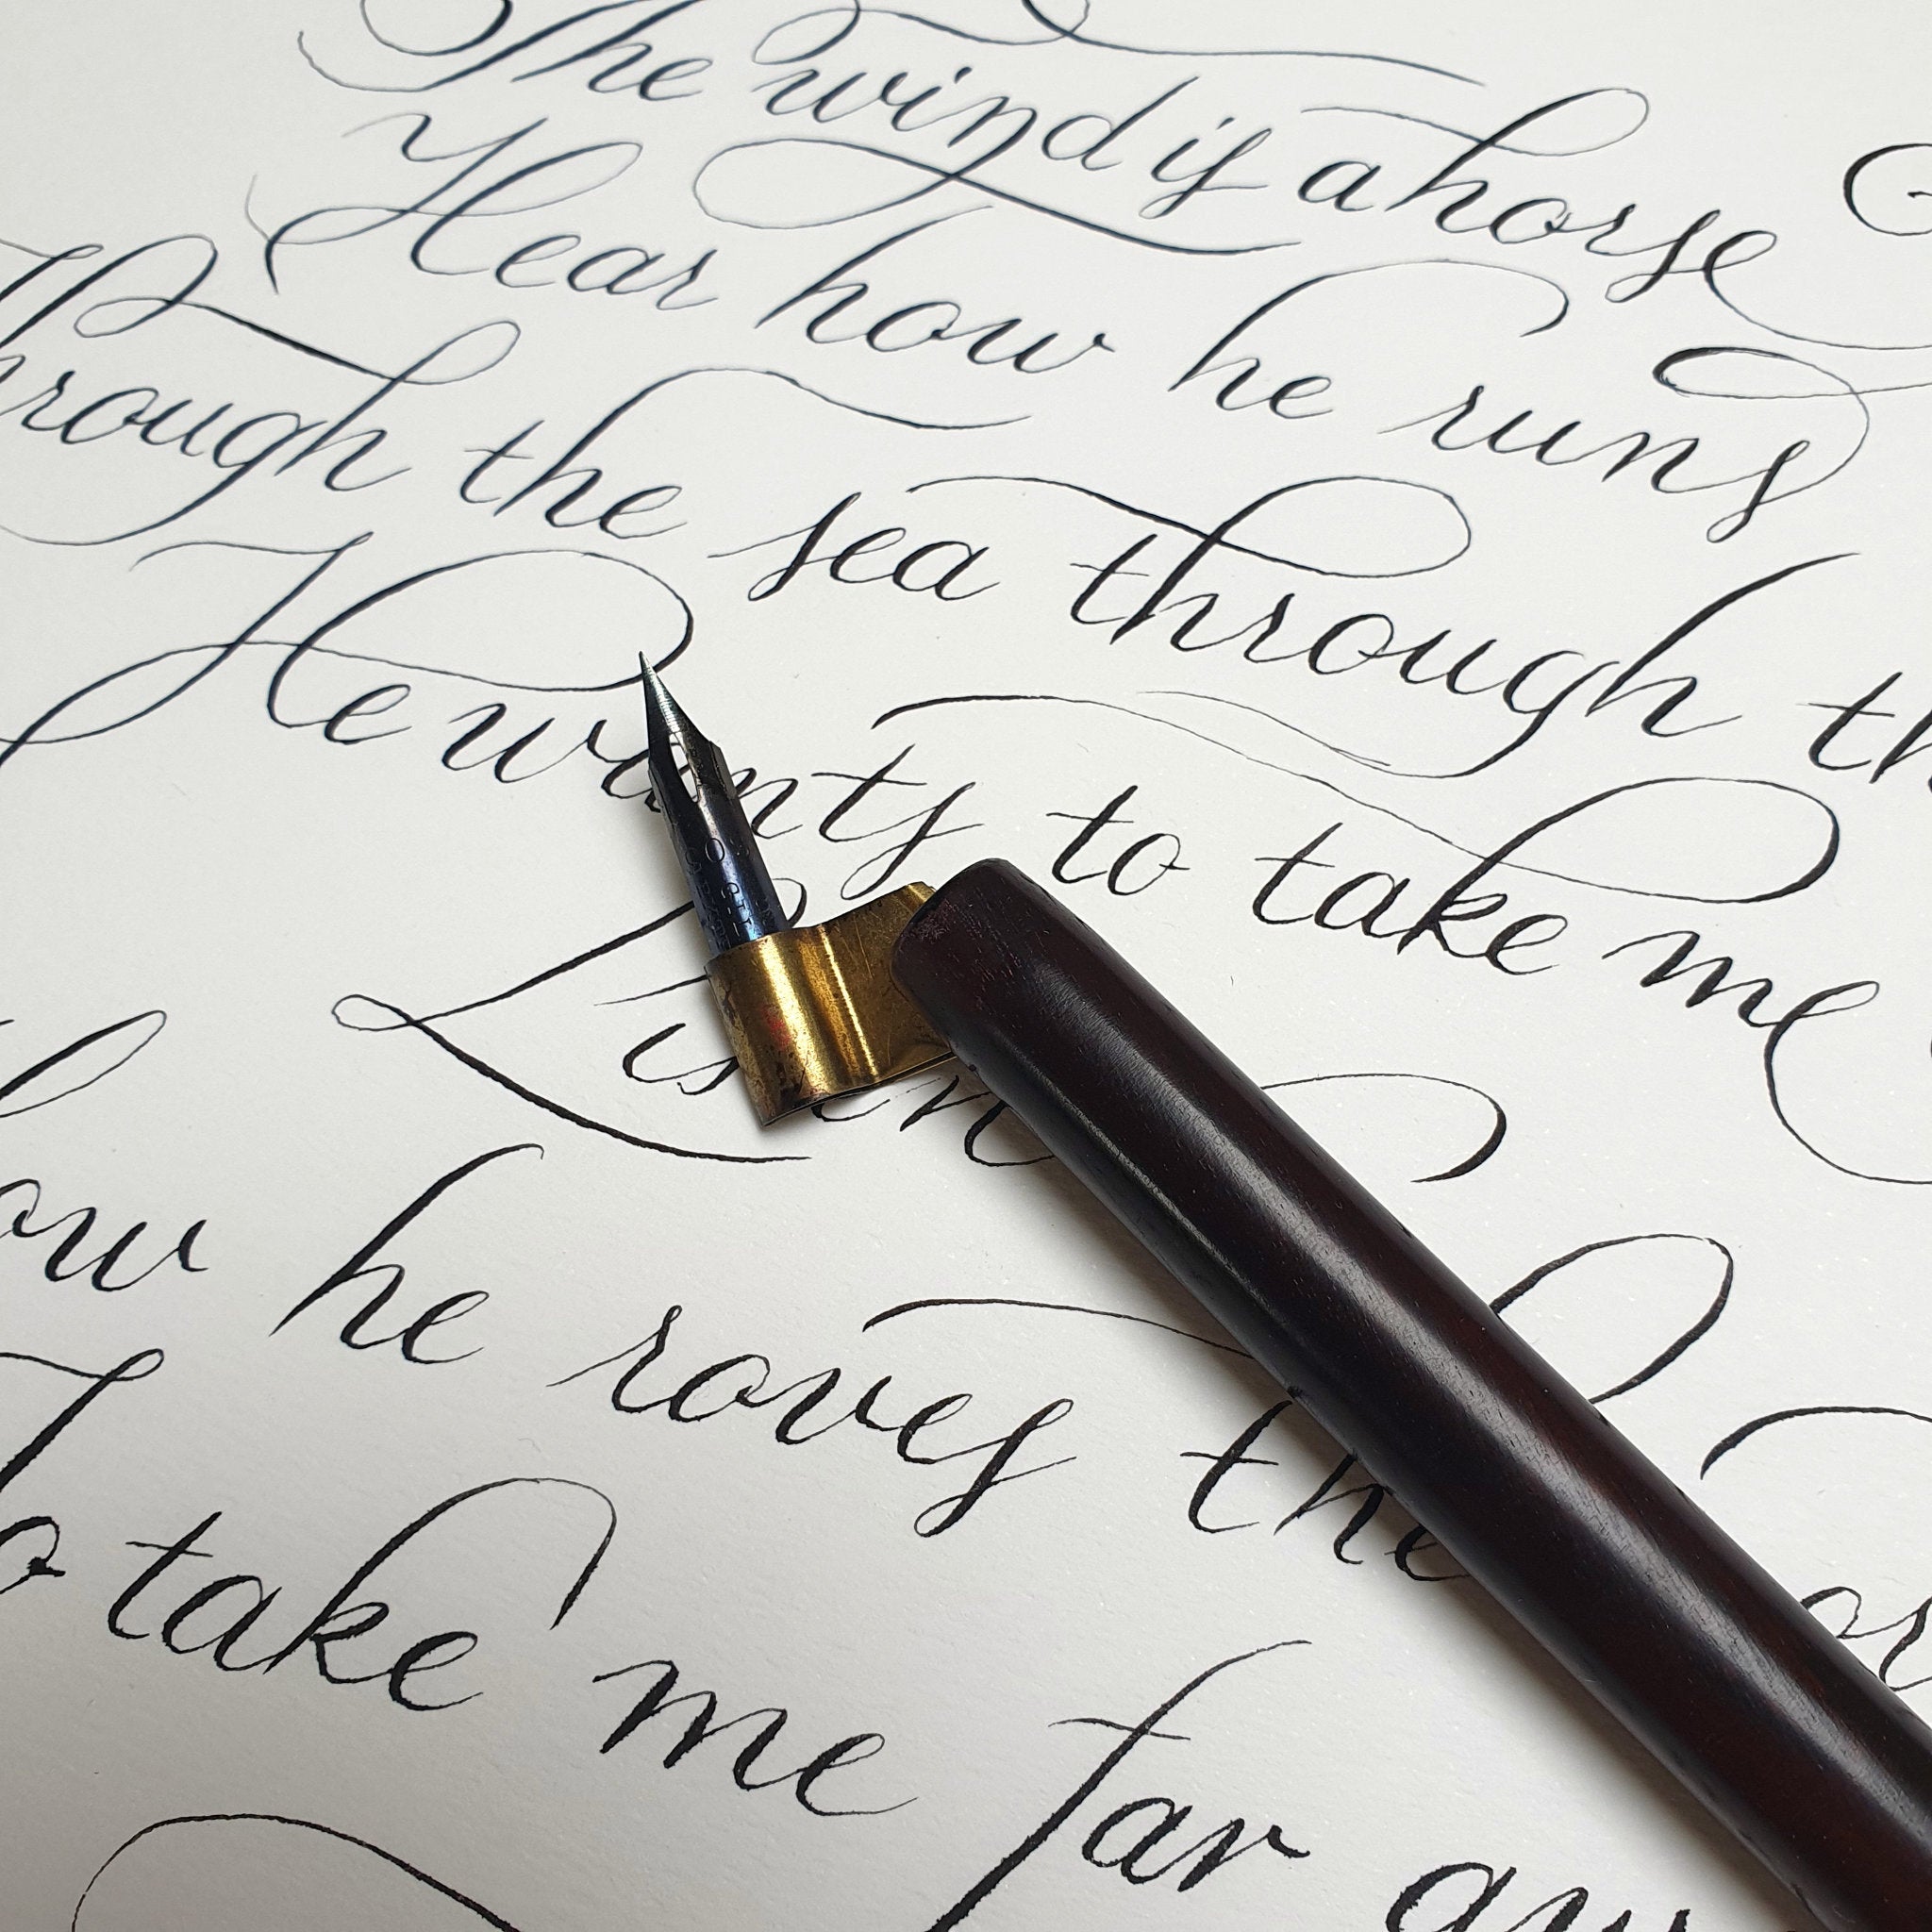 The wind is a horse
Hear how he runs
Through the sea through
He wants to take me
Listen
how he roves the
To take me far